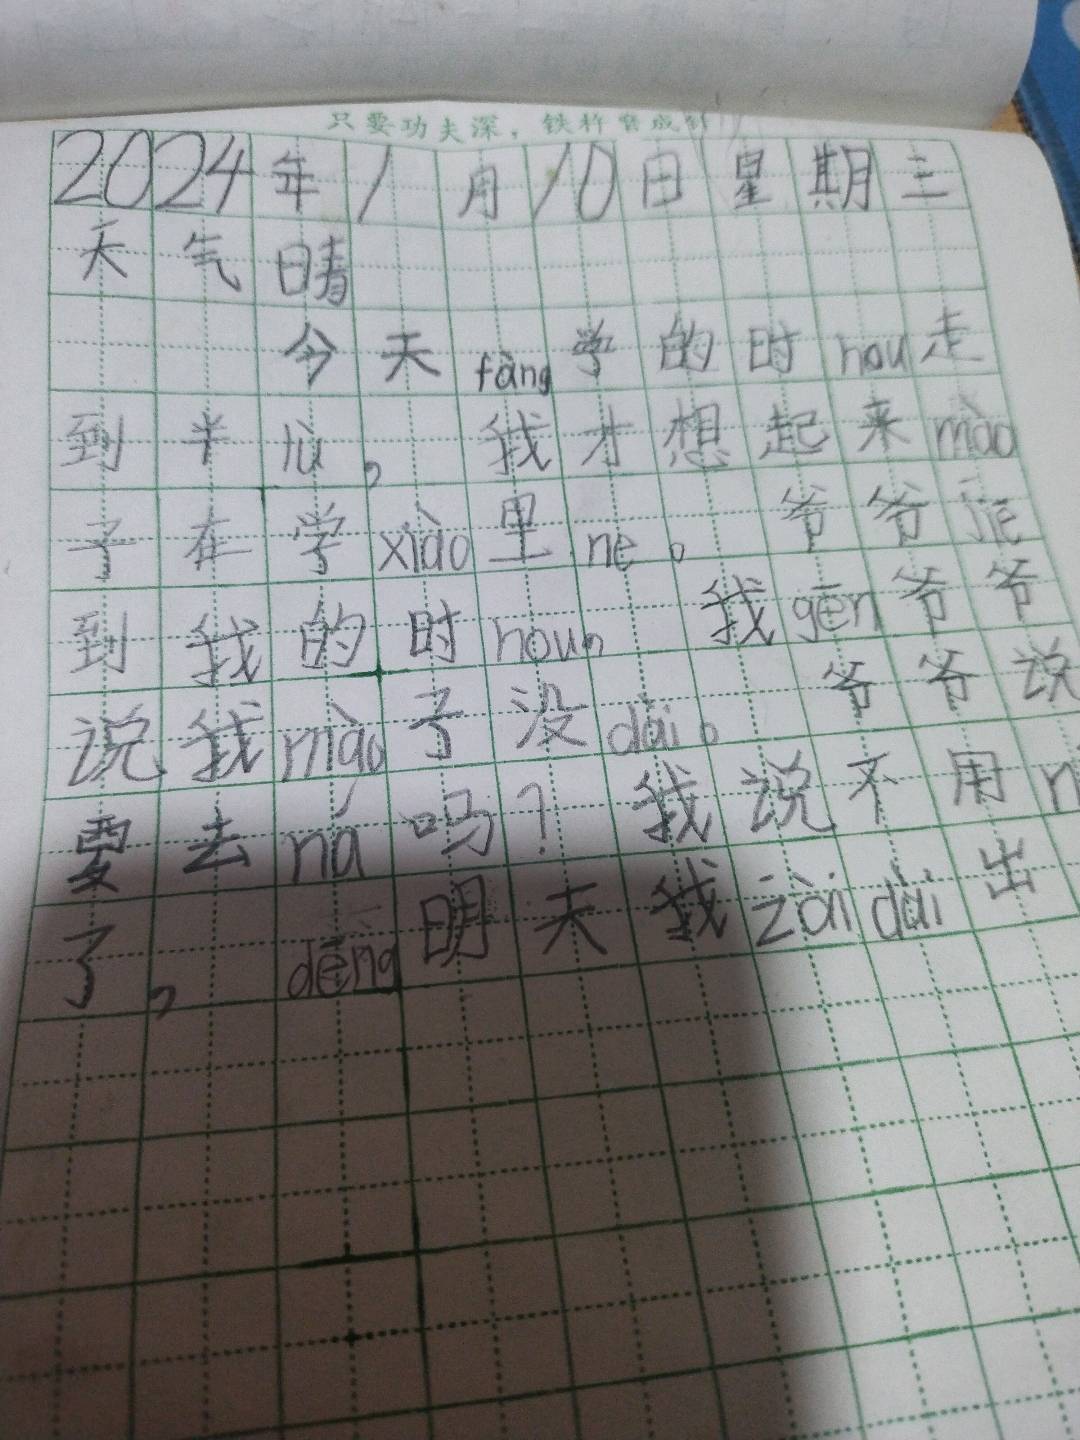 只要功夫深，铁杵磨成针
2024年1月10日星期三
天气晴
今天fàng学的时hou走
到半lù，我才想起来mào
子在学xiào里ne。爷爷jiē
到我的时hou，我gēn爷爷
说我mào子没dài。爷爷说
要去ná吗？我说不用n
了，děng明天我zài dài出